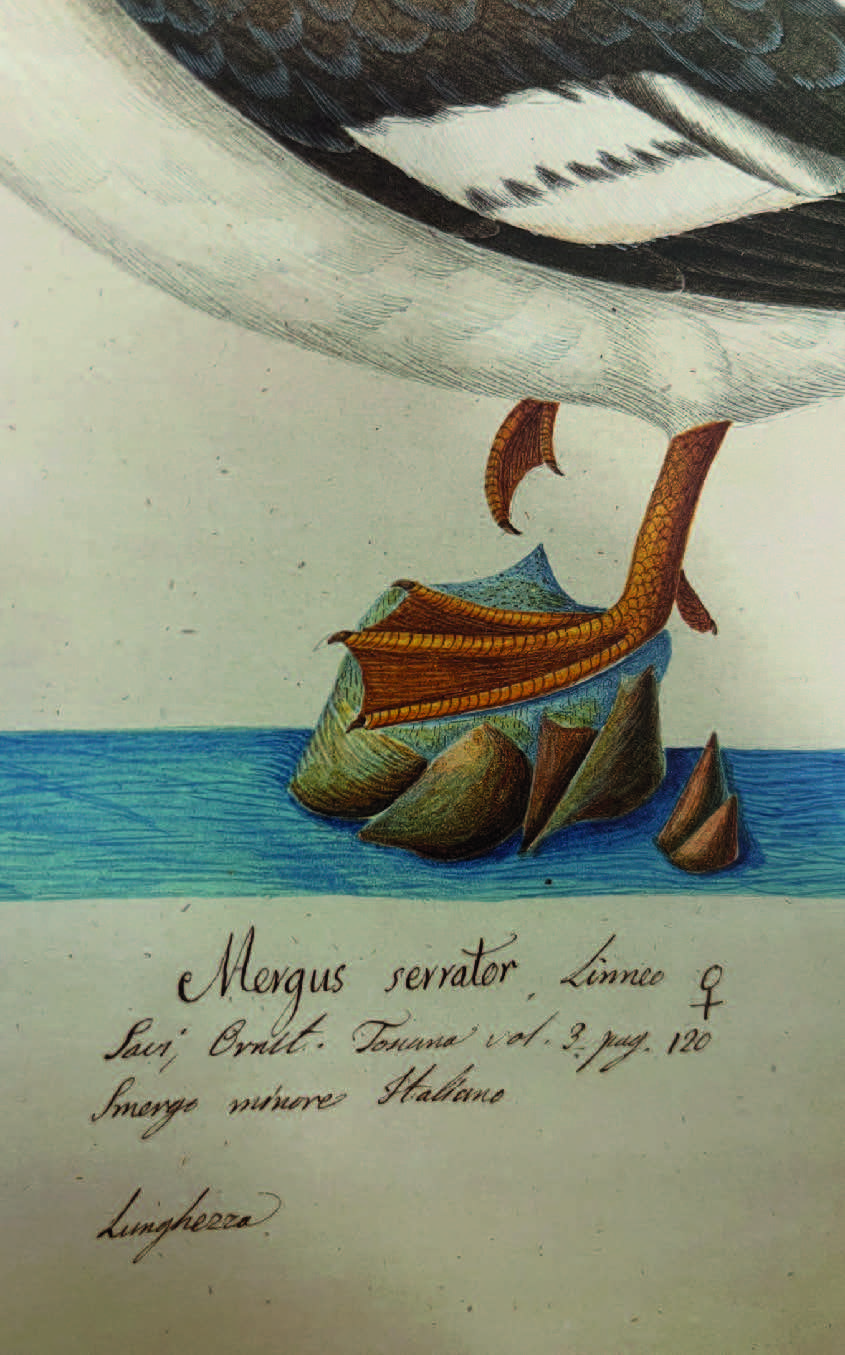 Mergus serrator, Linneo ♀
Savi, Ornit. Toscana vol. 3. pag. 120
Smergo minore Italiano
Lunghezza